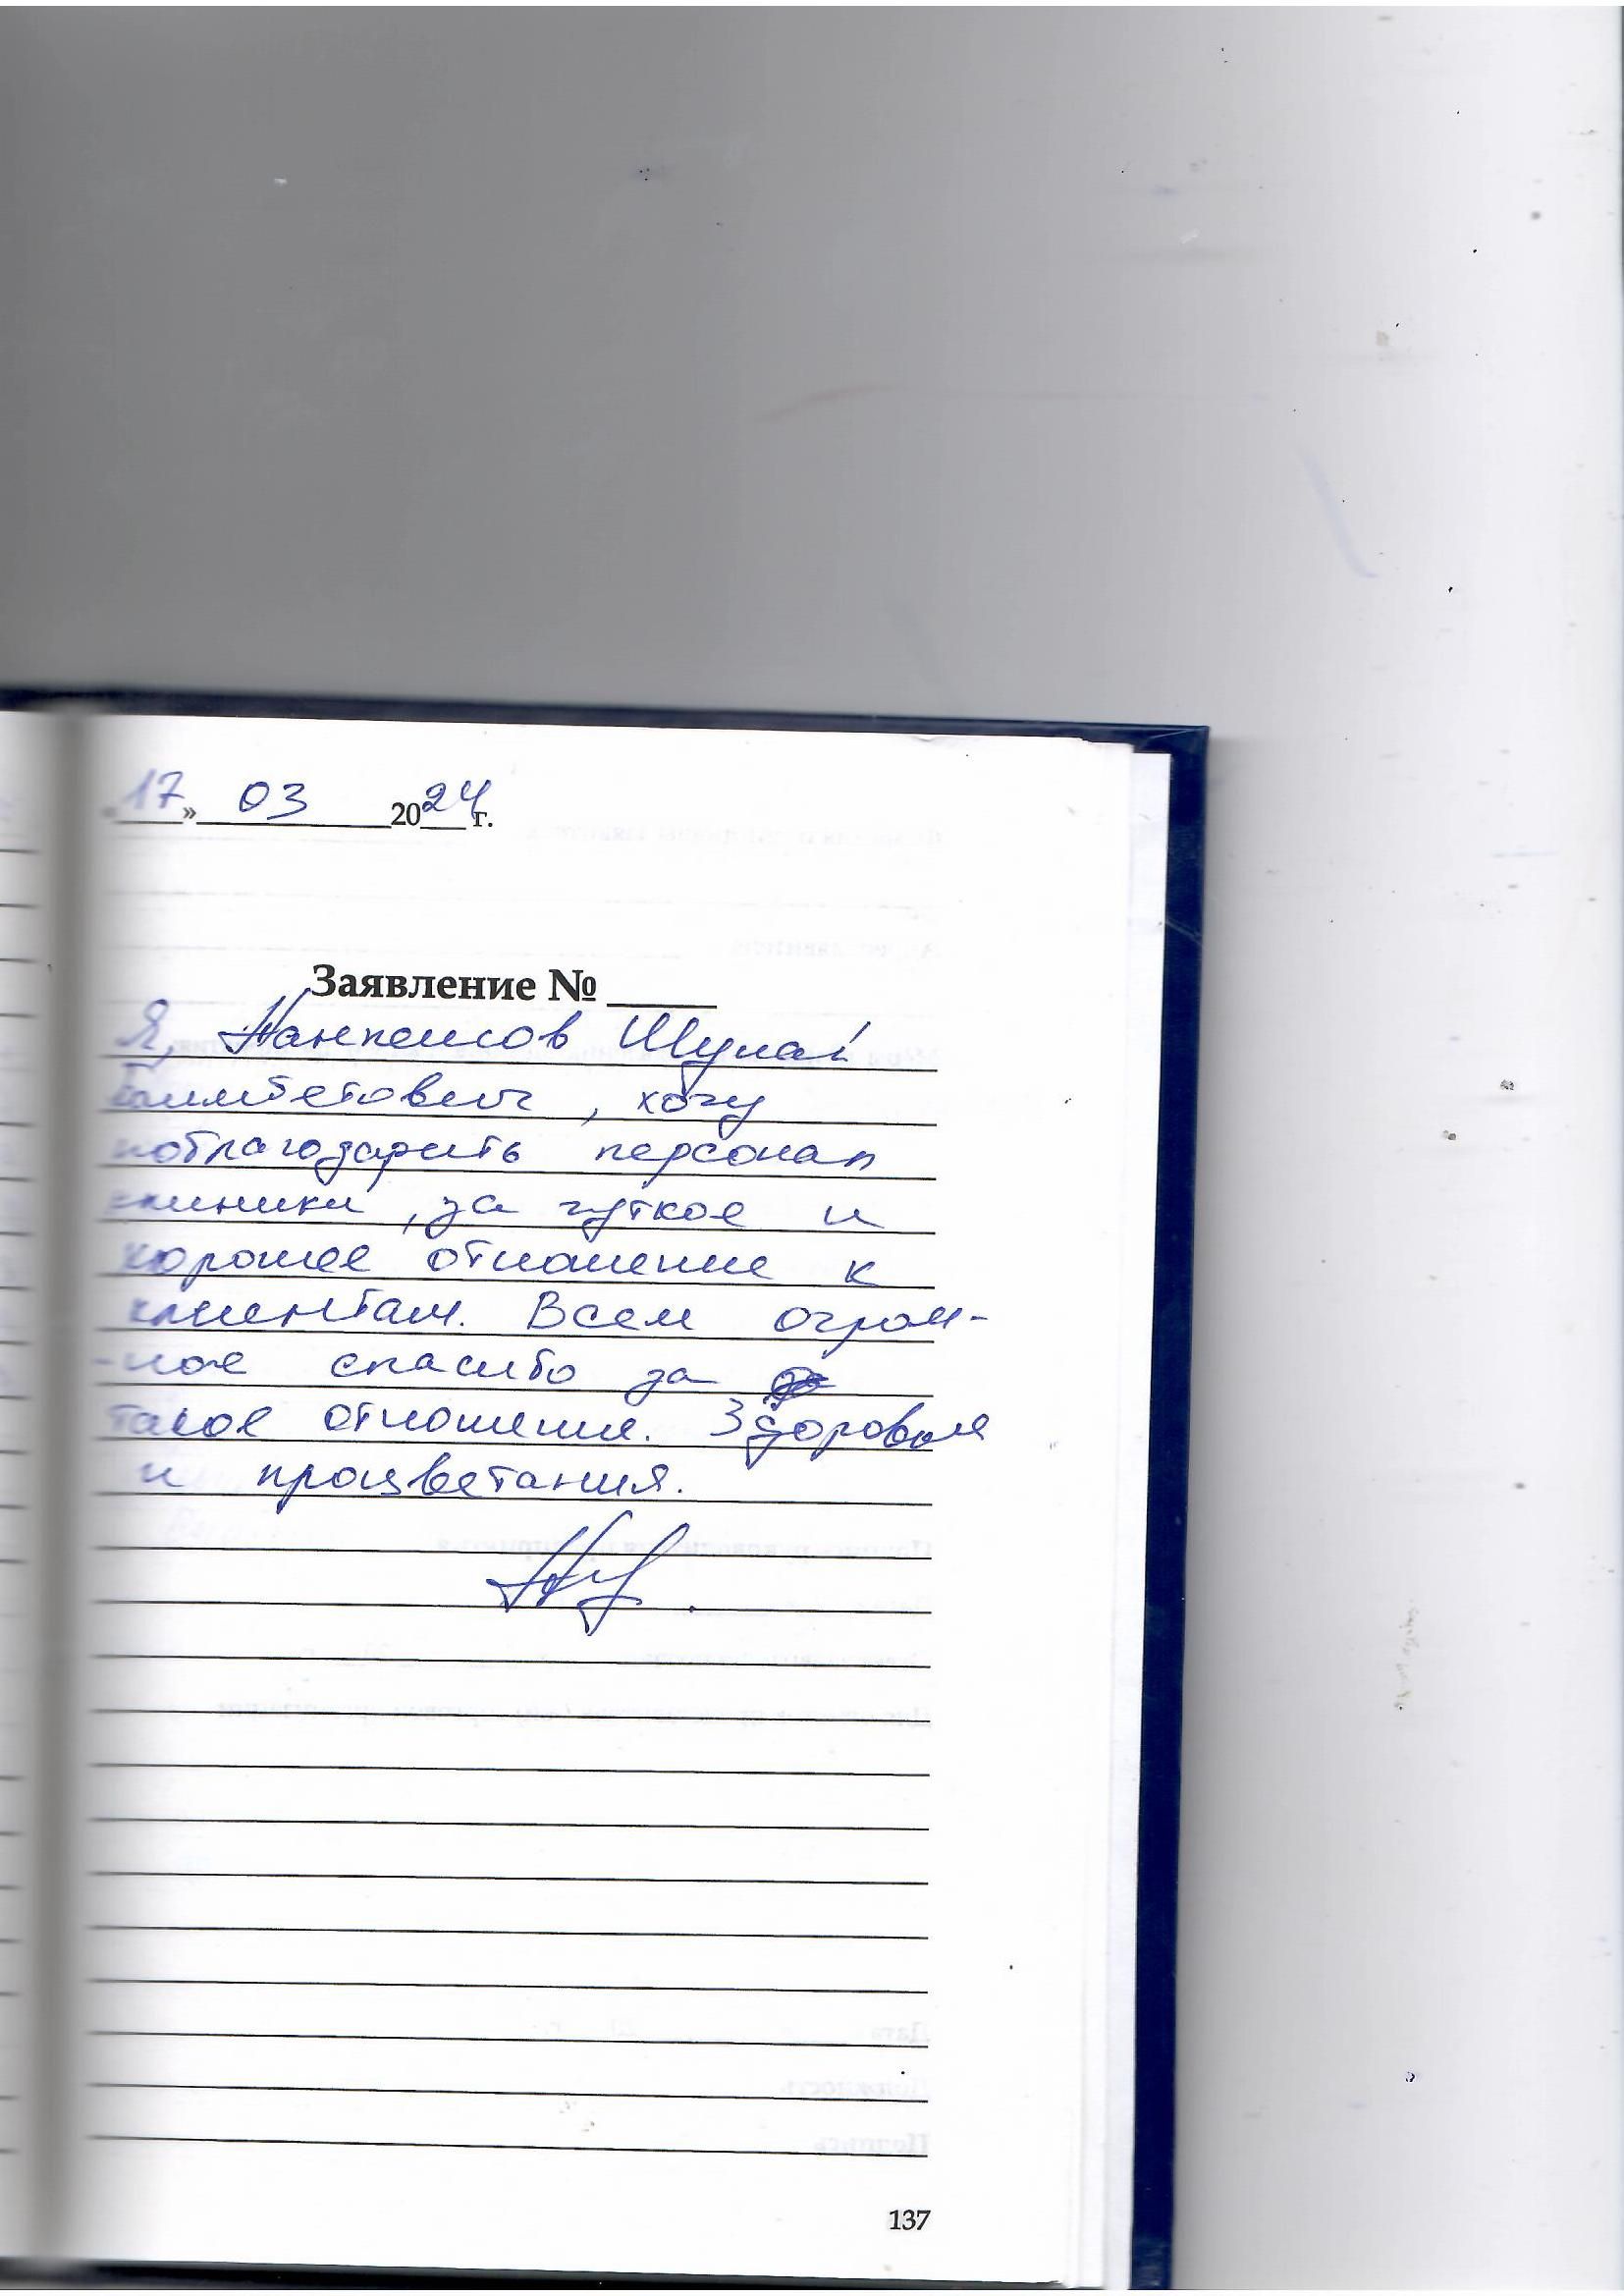 «17» 03 2024 г.
Заявление № ____
Я,
, хочу
поблагодарить персонал
клиники, за чуткое и
хорошее отношение к
клиентам. Всем огром-
-ное спасибо за
такое отношение. Здоровья
и процветания.
137